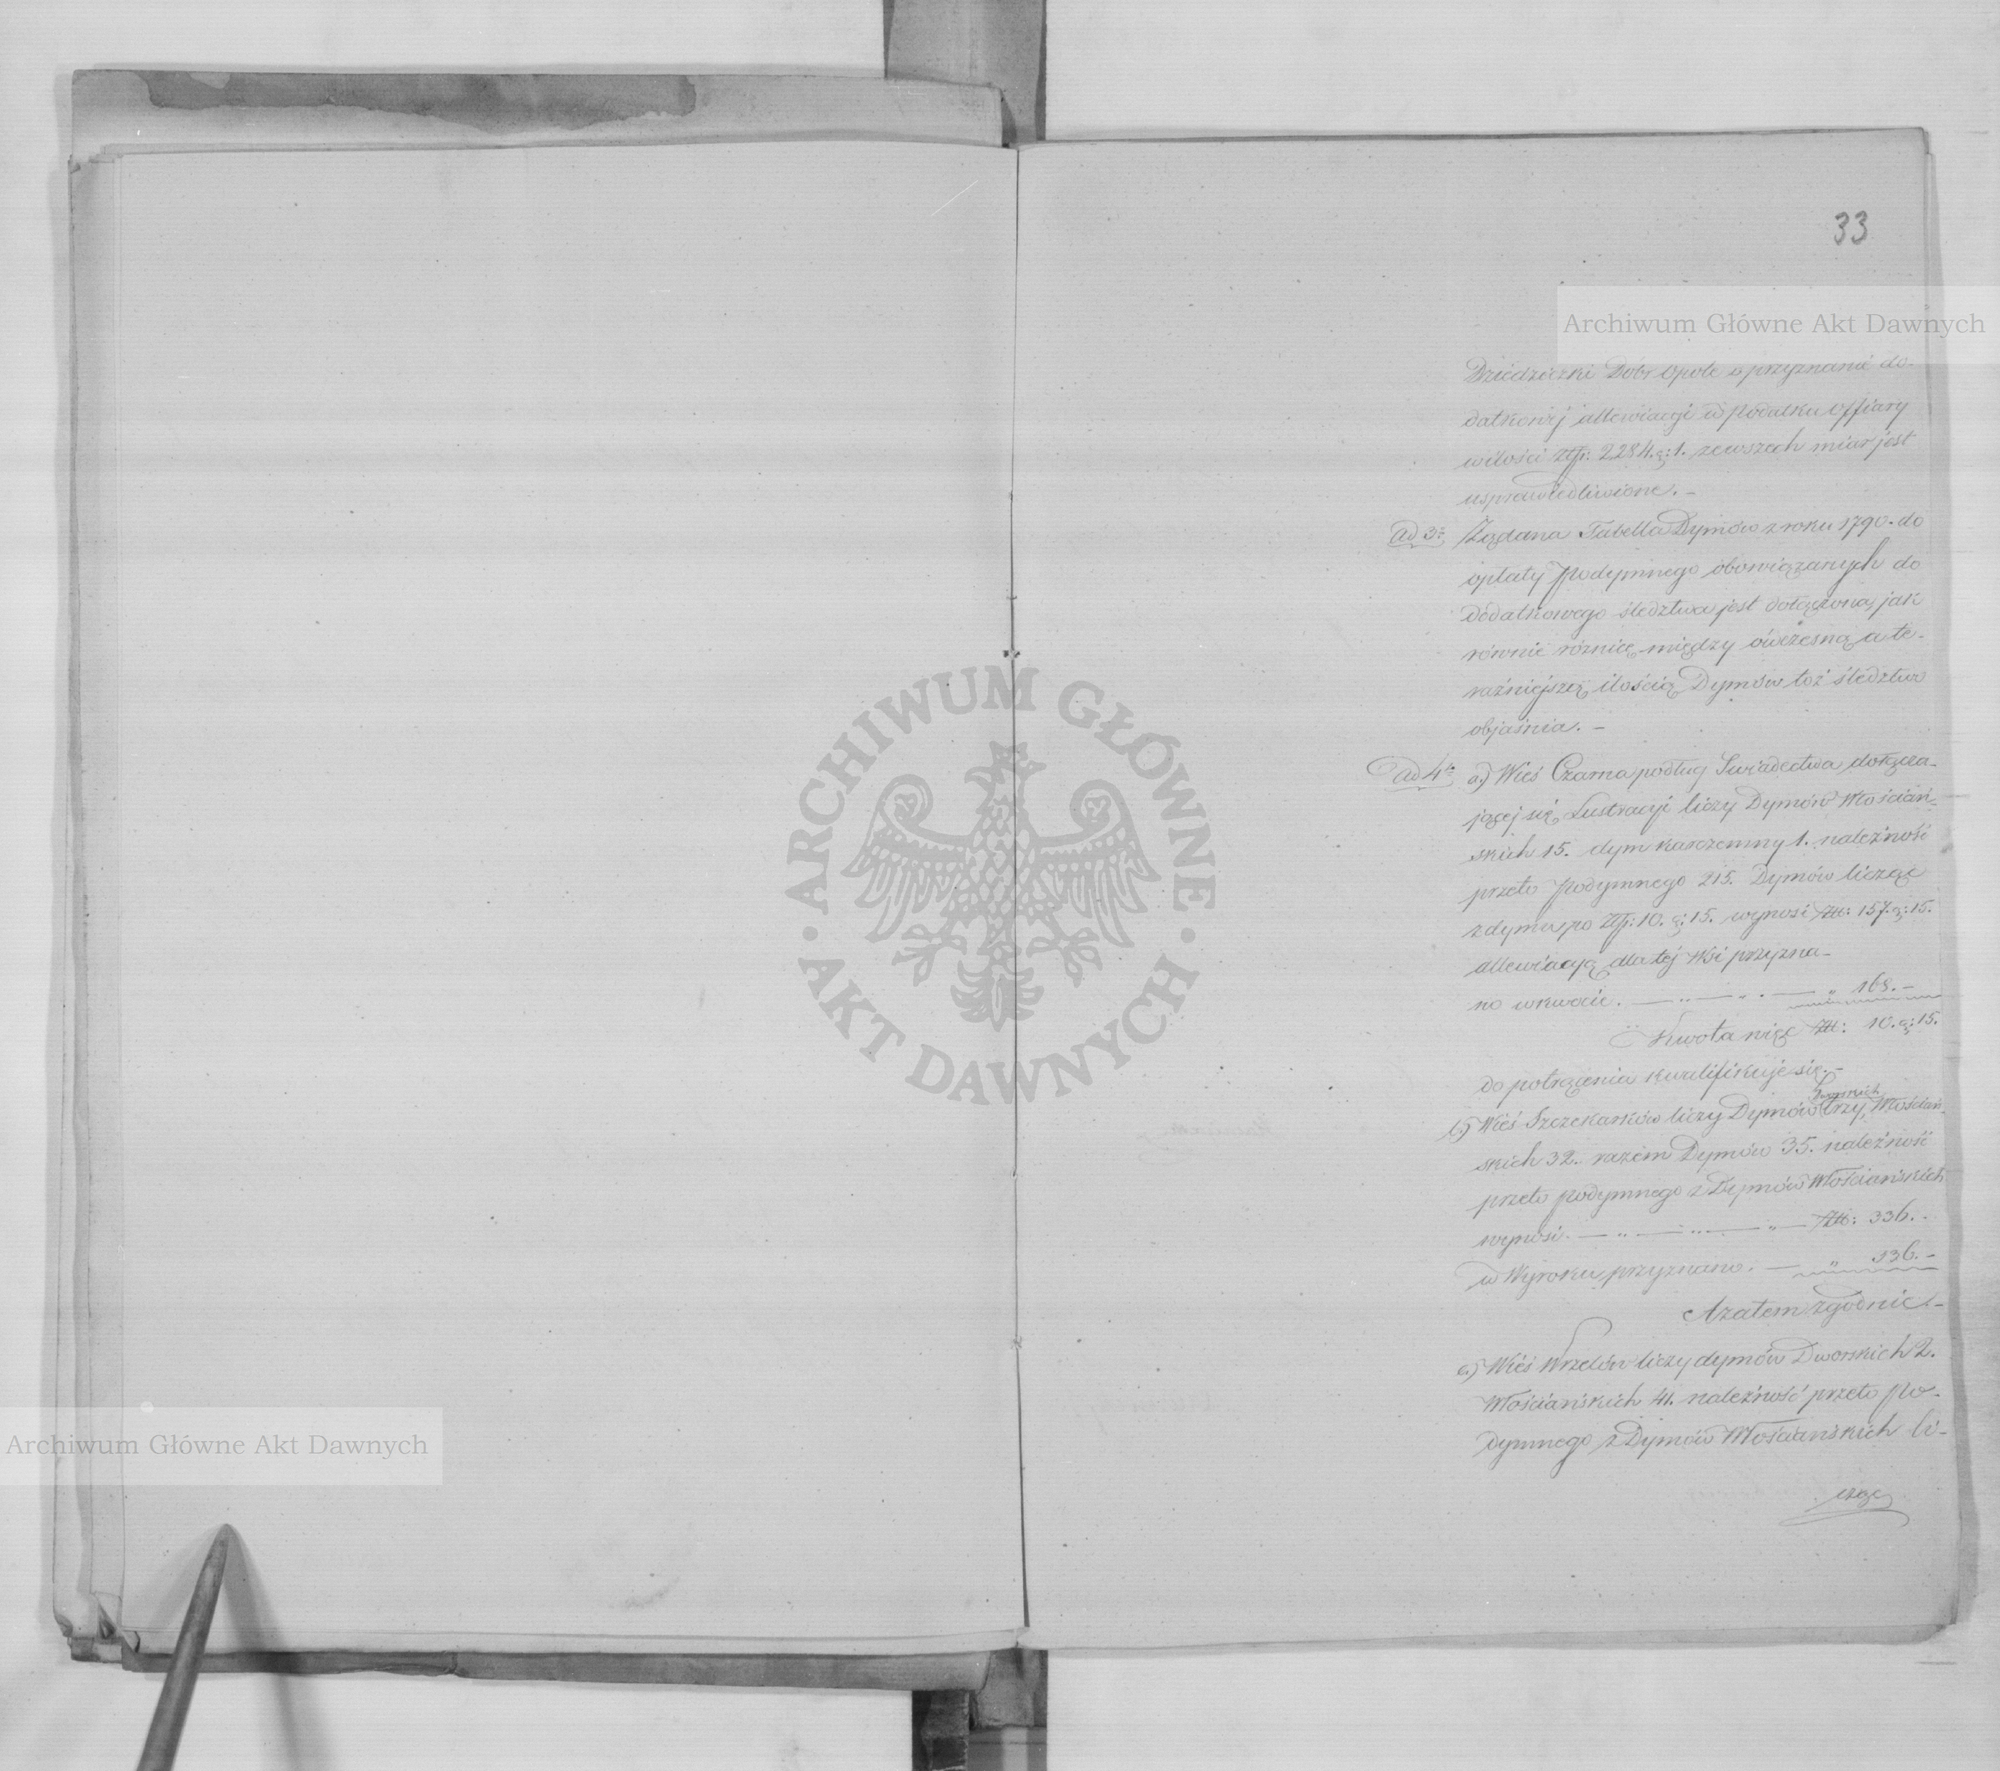 33
Archiwum Główne Akt Dawnych
Dziedziczki Dóbr Opole o przyznanie do-
datkowej allewiacyi w podatku Offiary
w ilości Złp: 2284. g: 1. zewszech miar jest
usprawiedliwione. –
ad 3: Żądana Tabella Dymów z roku 1790. do
opłaty Podymnego obowiązanych do
dodatkowego śledztwa jest dołączoną, jak
równie róźnicę między ówczesną a te-
raźniejszą ilością Dymów toż śledztwo
objaśnia. –
ad 4: a.) Wieś Czarna podług Swiadectwa dołącza-
jącej się Lustracyi liczy Dymów Włościań-
skich 15. dym karczemny 1. należność
przeto Podymnego z 15. Dymów licząc
z dymu po Złp: 10. g: 15. wynosi Złł: 157. g: 15.
allewiacyą dla tej Wsi przyzna-
no w kwocie. — „ — „ — „ 168. –
Kwota więc Złł: 10. g: 15.
do potrącenia kwalifikuje się. –
b.) Wieś Szczekarków liczy Dymów Dworskich trzy, Włościań-
skich 32. razem Dymów 35. należność
przeto podymnego z Dymów Włościańskich
wynosi. — „ — „ — „ — Złł: 336. -
w Wyroku przyznano. — „ 336. –
A zatem zgodnie. –
c.) Wieś Wrzelów liczy dymów Dworskich 2.
Włościańskich 41. należność przeto Po-
dymnego z Dymów Włościańskich li-
cząc
ARCHIWUM GŁÓWNE
AKT DAWNYCH
Archiwum Główne Akt Dawnych